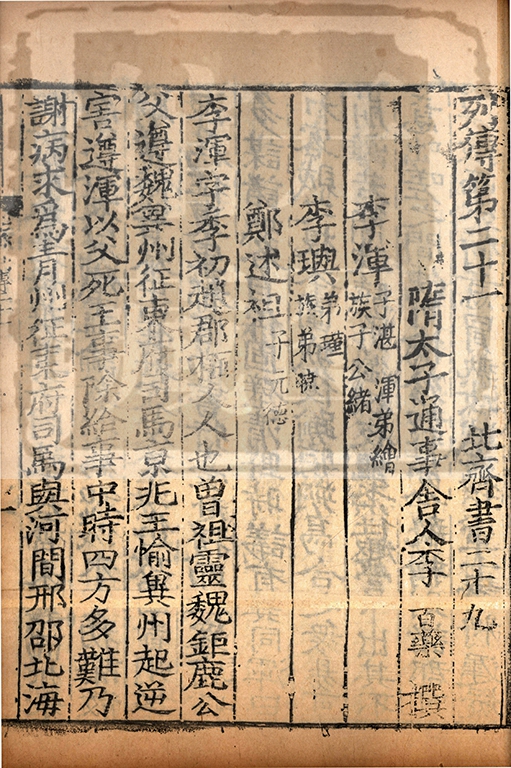 列傳第二十一 北齊書二十九
隋太子通事舍人李 百藥 撰
李渾 子湛 渾弟繪 族子公緒
李璵 弟瑾 族弟曉
鄭述祖 子元德
李渾字季初趙郡柏人人也曾祖靈魏鉅鹿公
父遵魏兾州征東府司馬京兆王愉兾州起逆
害遵渾以父死王事除給事中時四方多難乃
謝病求爲青州征東府司馬與河間邢邵北海